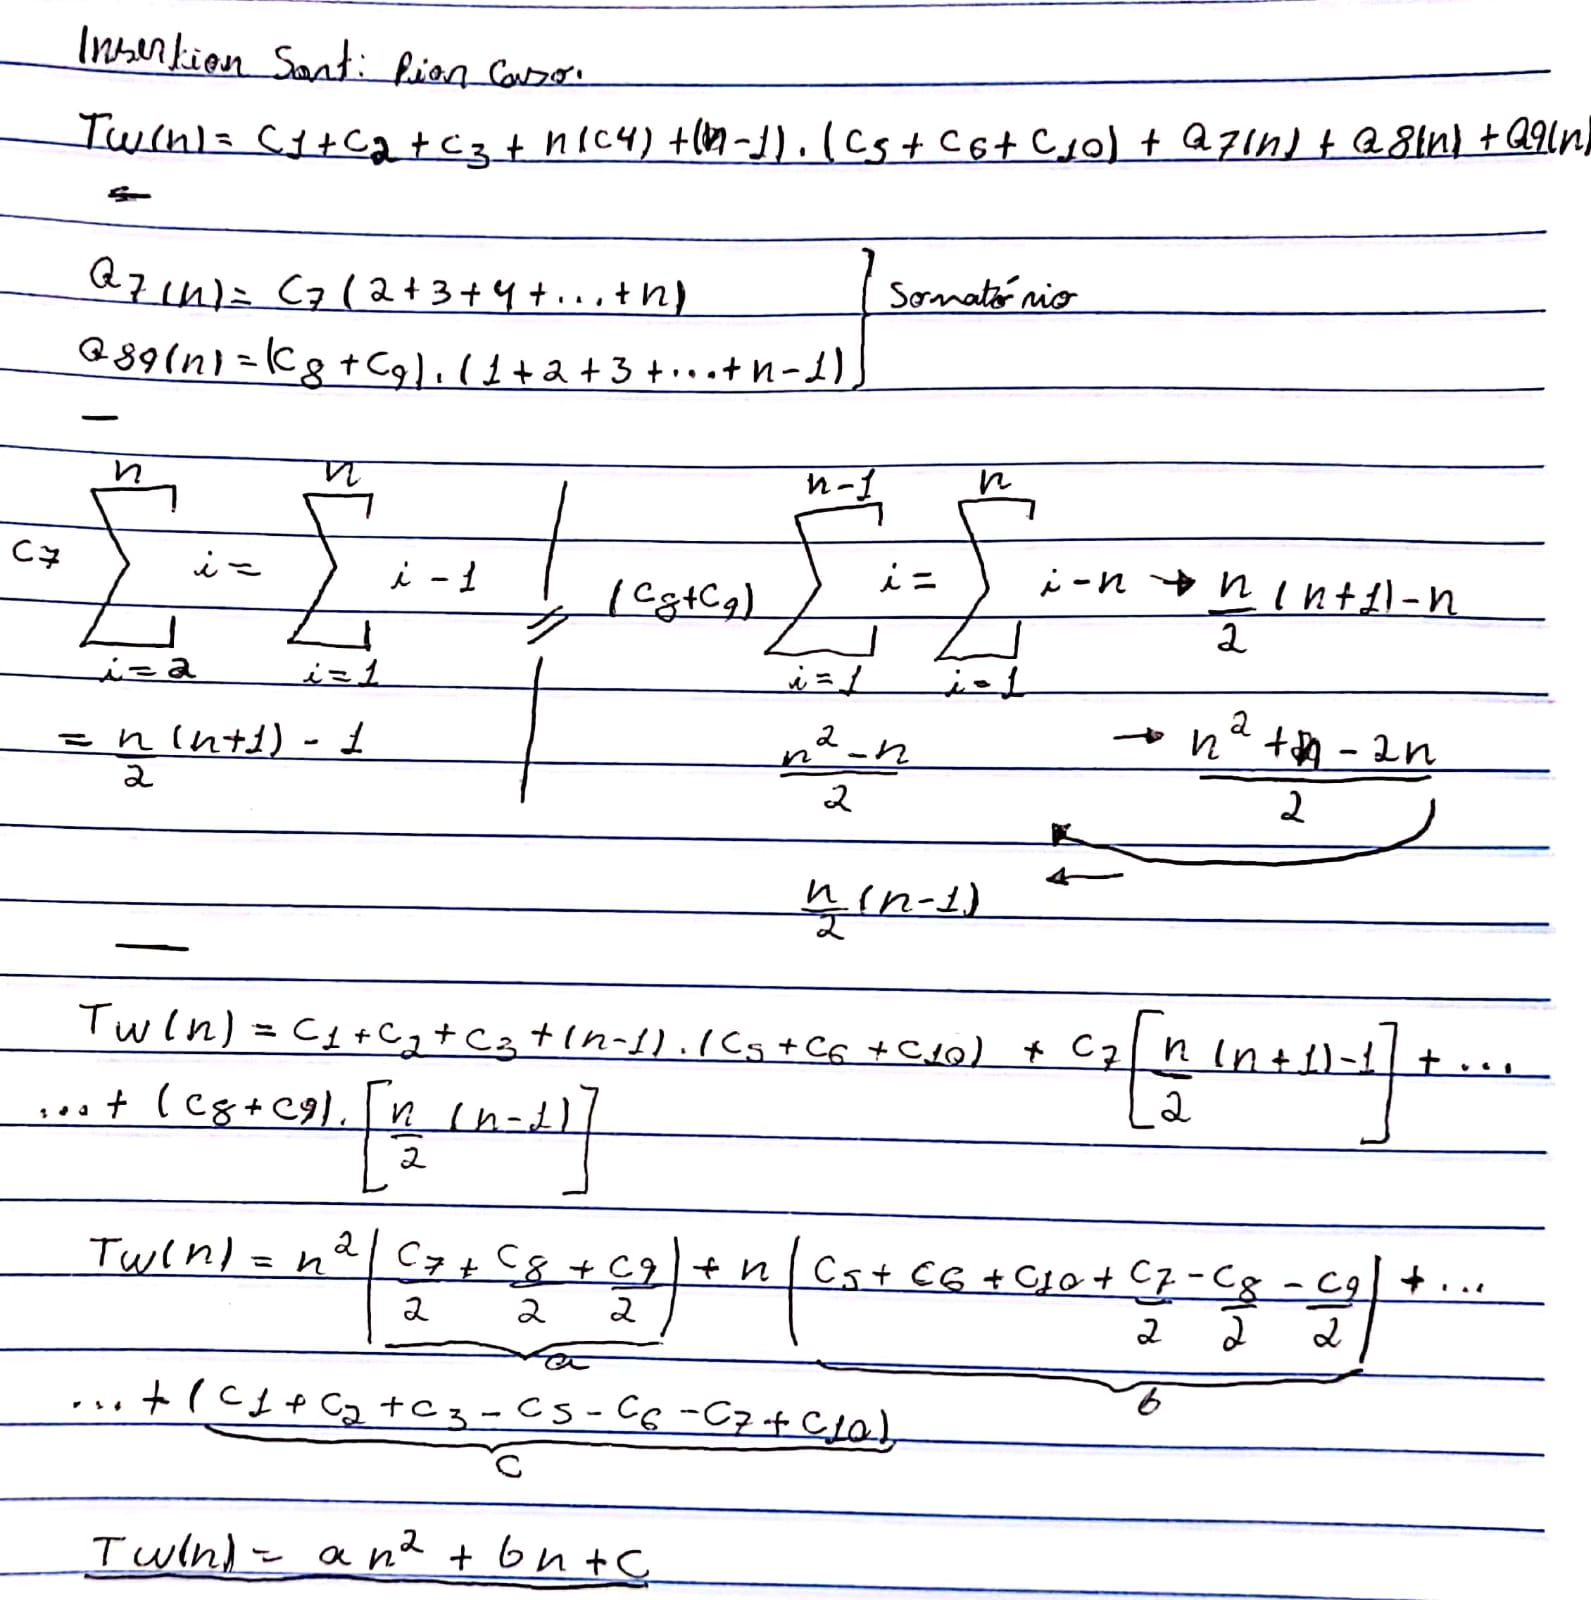 Insertion Sort: Pior Caso.
Tw(n) = C1 + C2 + C3 + n(C4) + (n-1).(C5 + C6 + C10) + Q7(n) + Q8(n) + Q9(n)
Q7(n) = C7(2+3+4+...+n)
Somatório
Q89(n) = (C8+C9).(1+2+3+...+n-1)
C7 ∑_{i=2}^{n} i = ∑_{i=1}^{n} i - 1
(C8+C9) ∑_{i=1}^{n-1} i = ∑_{i=1}^{n} i - n → n/2 (n+1) - n
= n/2 (n+1) - 1
(n² - n)/2
→ (n² + n - 2n)/2
n/2 (n-1)
Tw(n) = C1 + C2 + C3 + (n-1).(C5 + C6 + C10) + C7 [n/2 (n+1) - 1] + ...
... + (C8+C9).[n/2 (n-1)]
Tw(n) = n² (C7/2 + C8/2 + C9/2) + n (C5 + C6 + C10 + C7/2 - C8/2 - C9/2) + ...
a
b
... + (C1 + C2 + C3 - C5 - C6 - C7 + C10)
C
Tw(n) = an² + bn + C